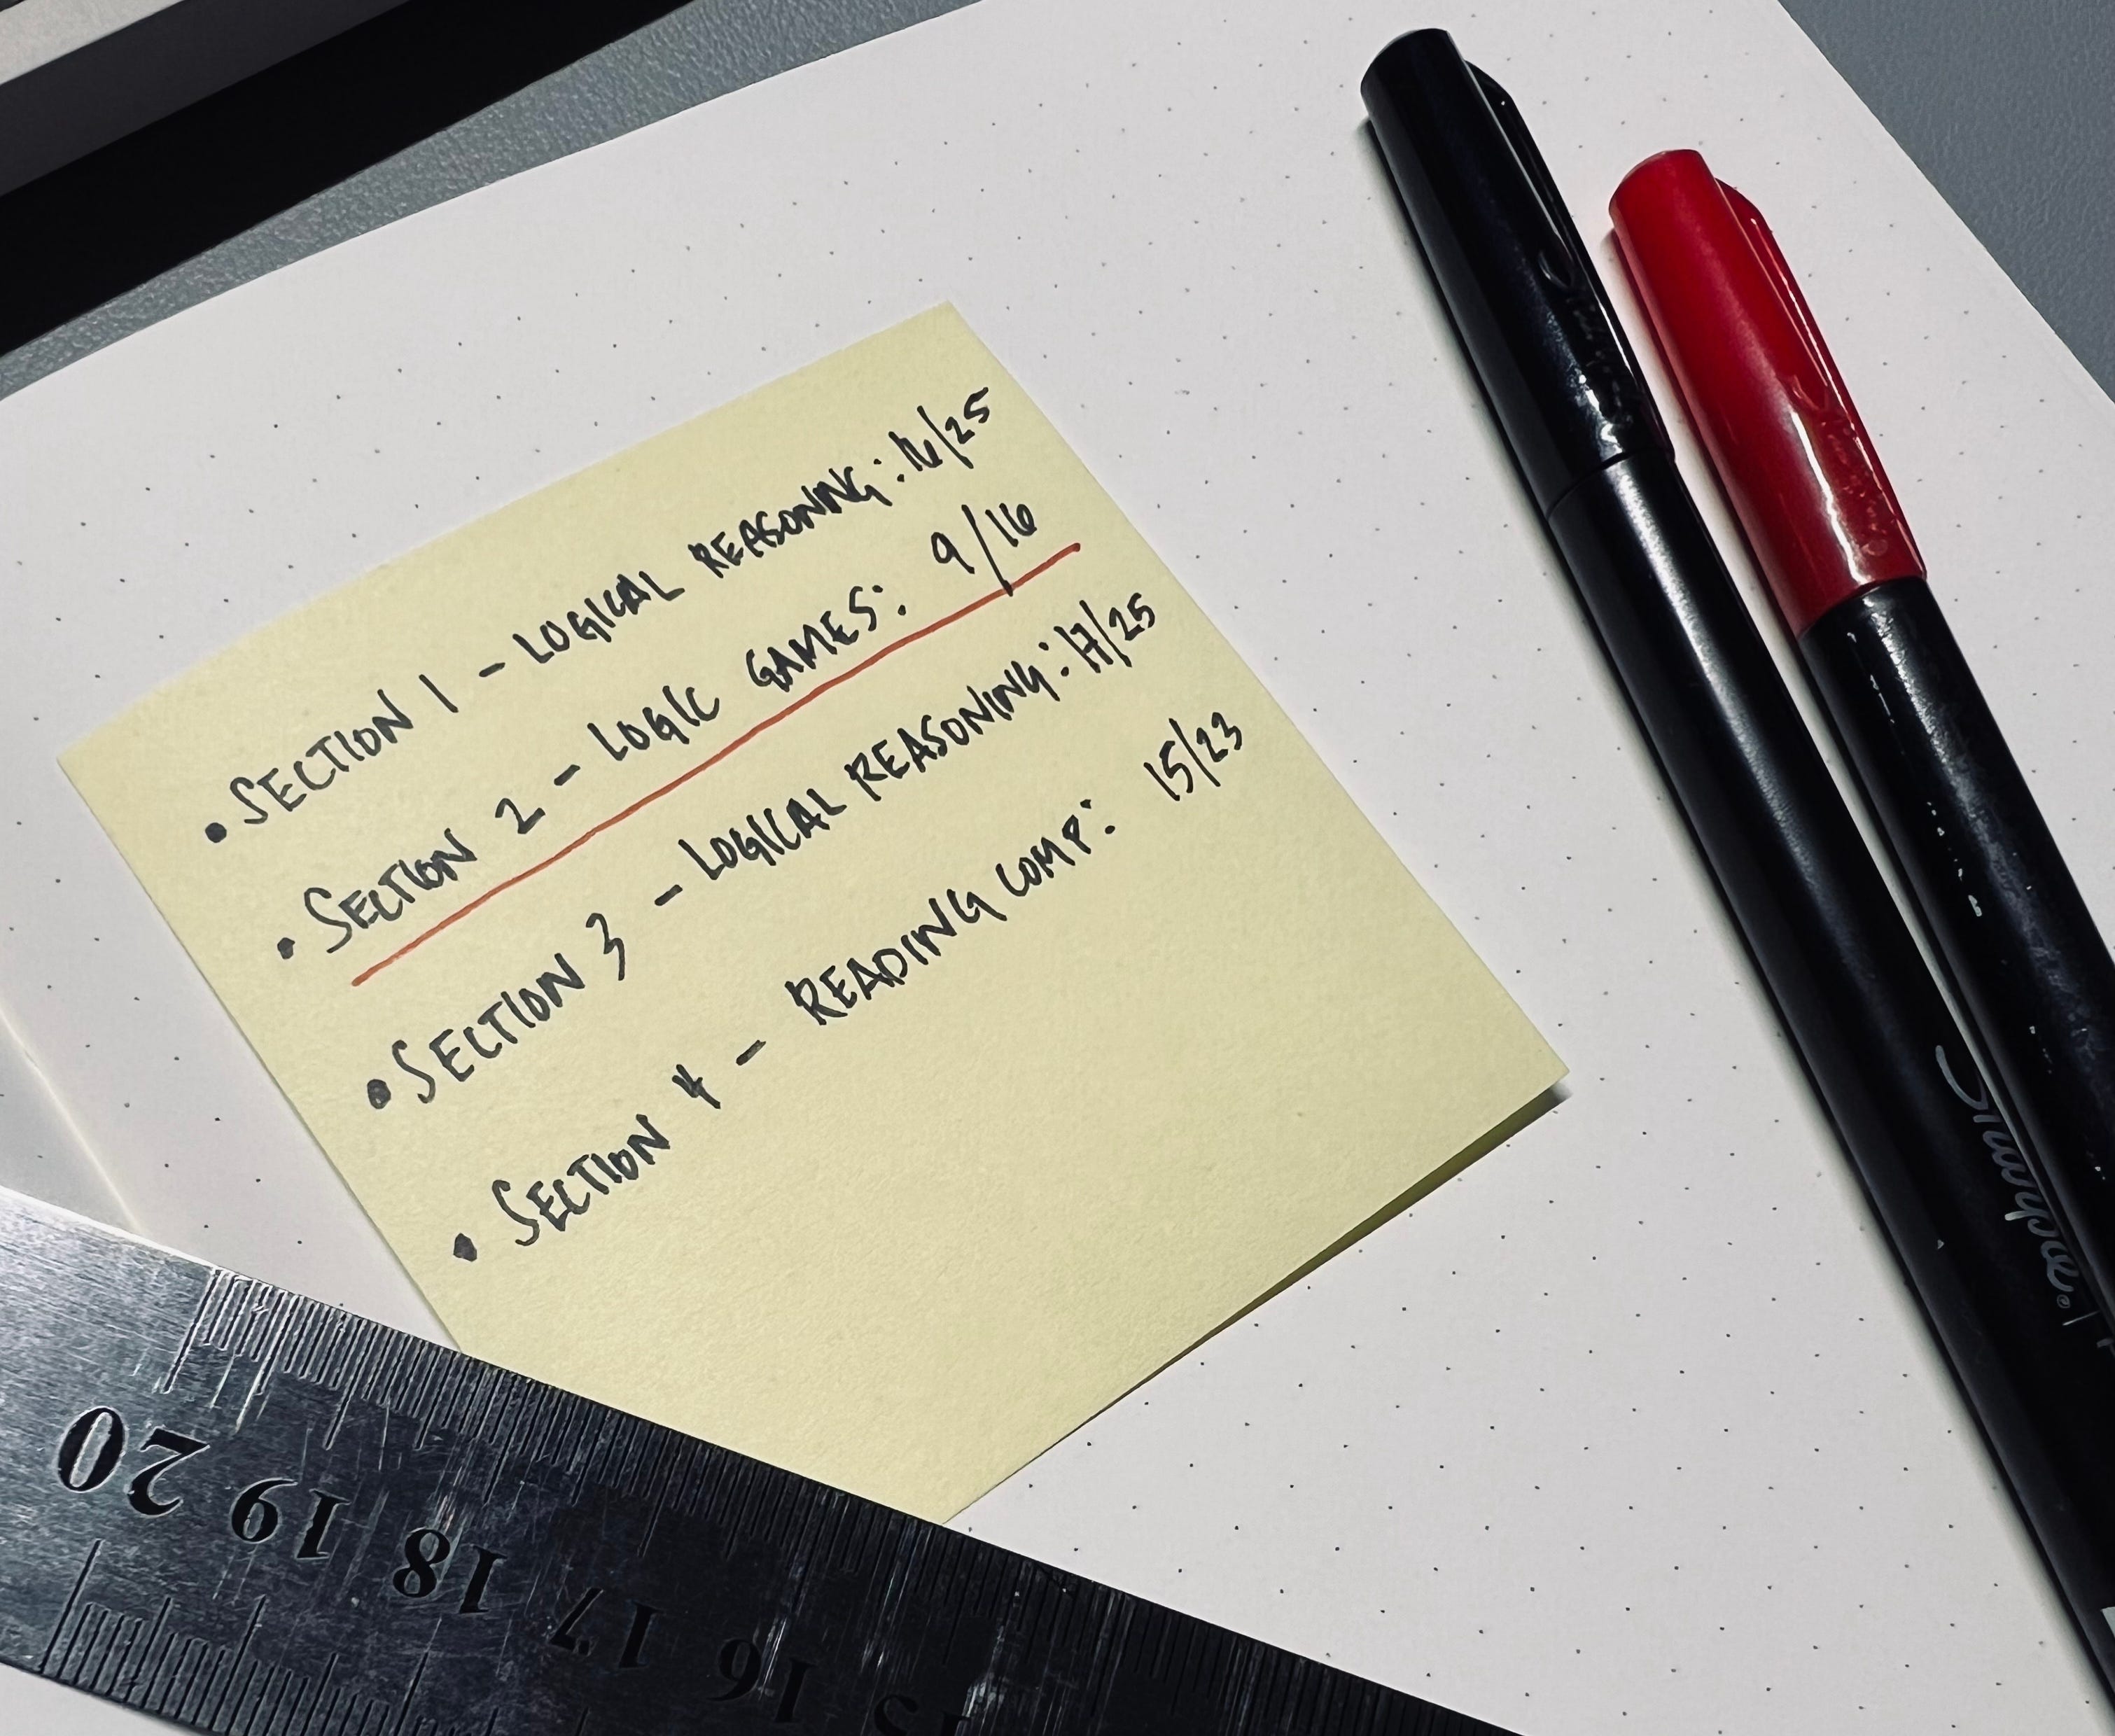 • SECTION 1 - LOGICAL REASONING: 16/25
• SECTION 2 - LOGIC GAMES: 9/16
• SECTION 3 - LOGICAL REASONING: 17/25
• SECTION 4 - READING COMP: 15/23
Sharpie
20 19 18 17 16 15